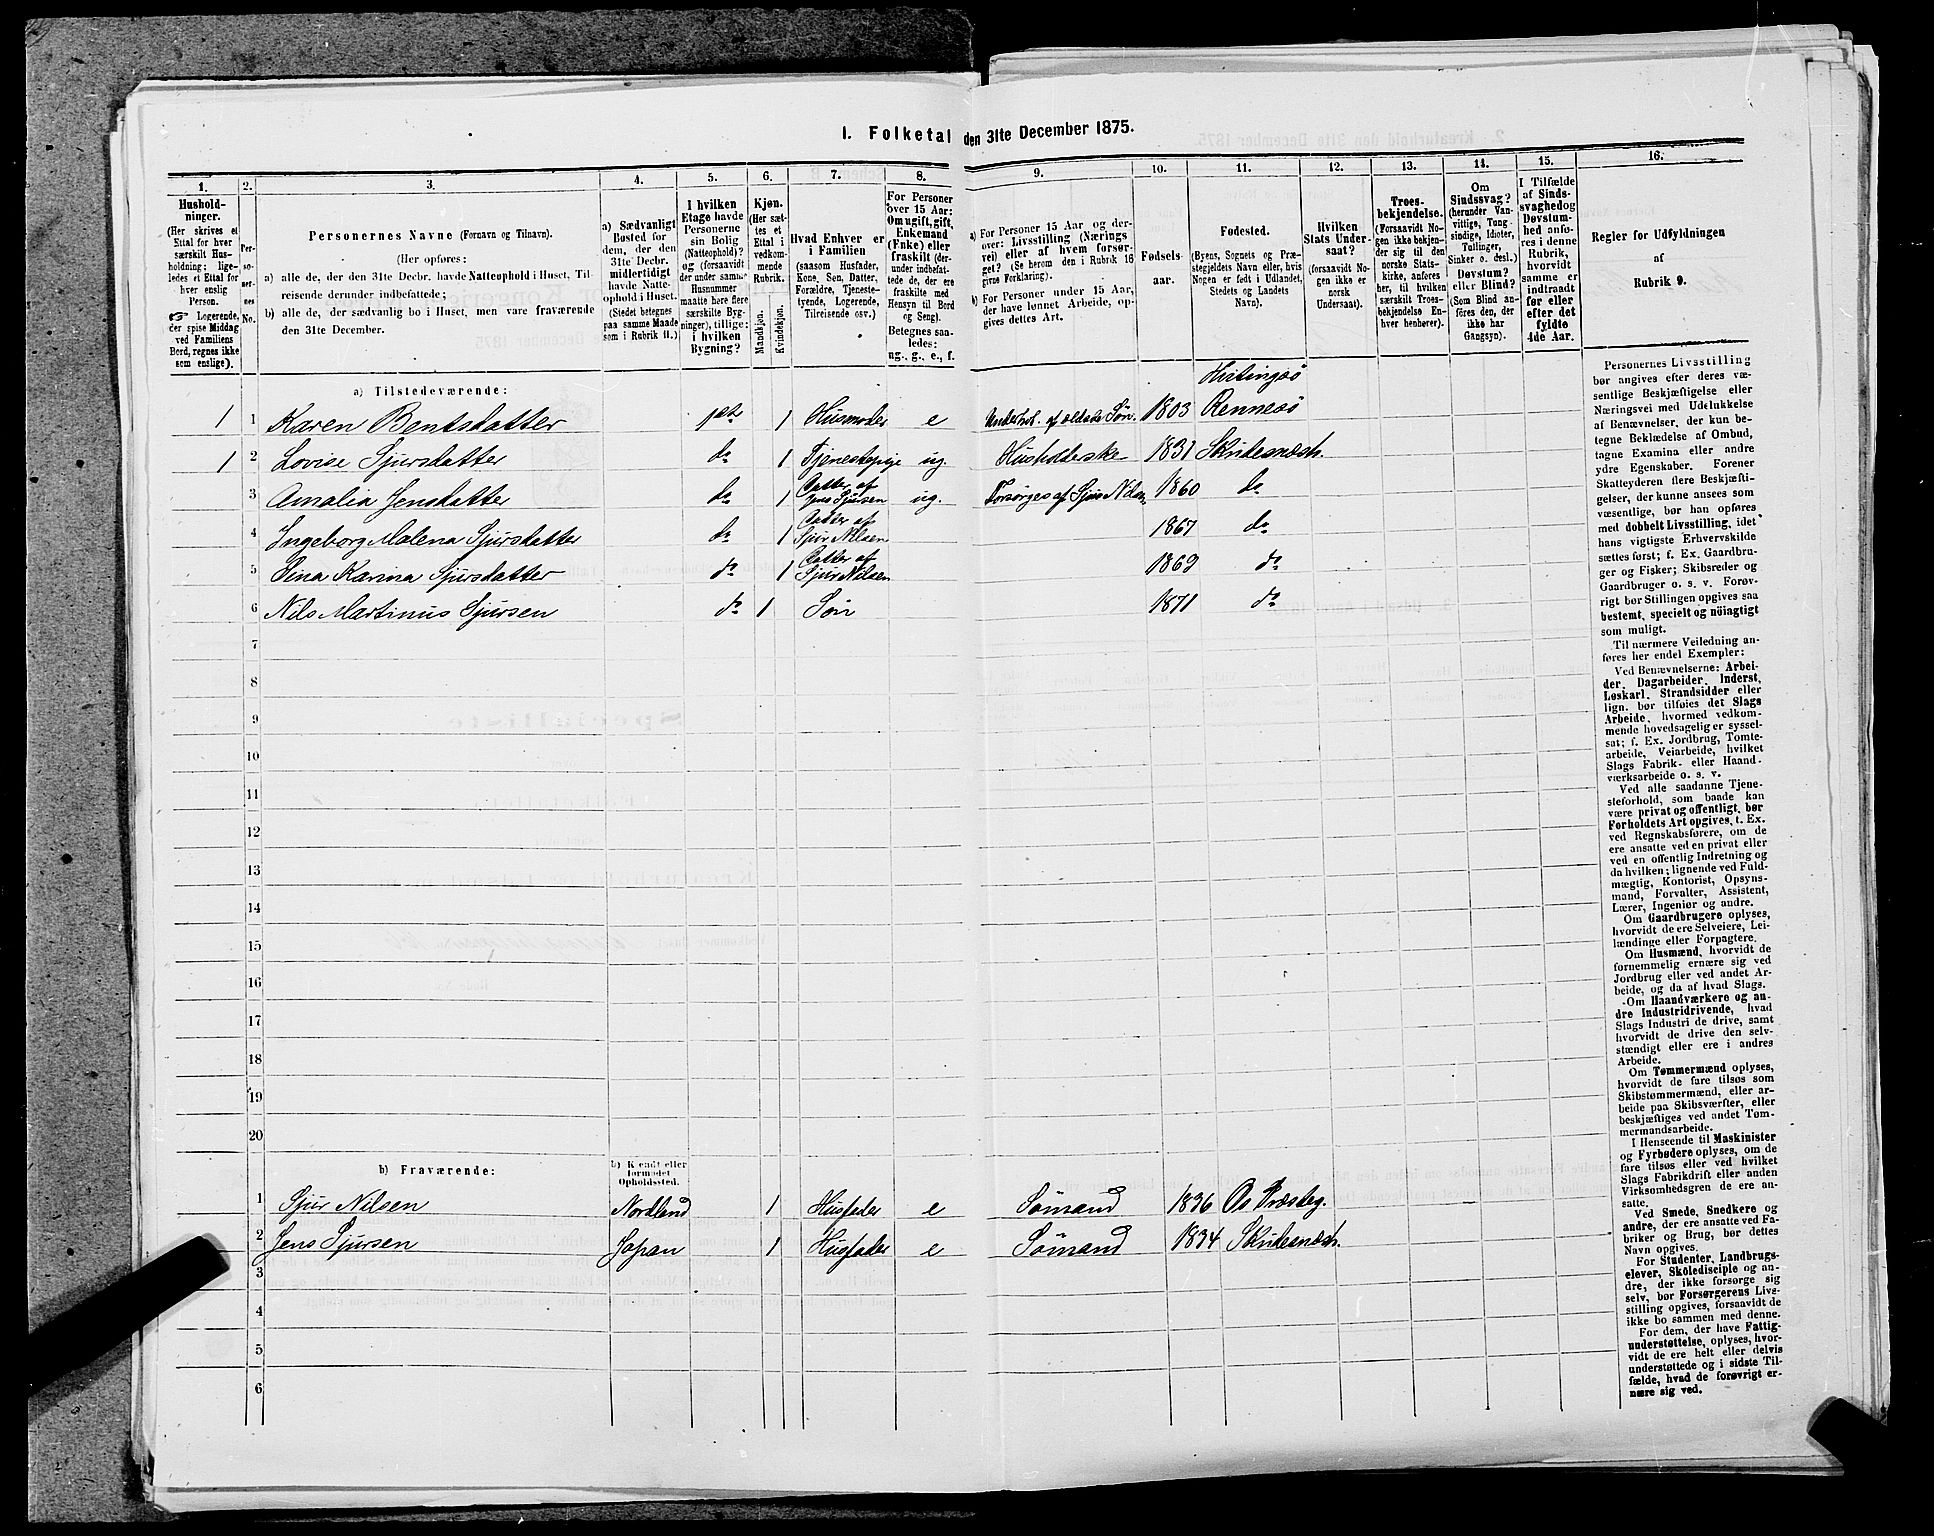 I. Folketal den 31te December 1875.
1. 2. 3. 4. 5. 6. 7. 8. 9. 10. 11. 12. 13. 14. 15. 16.
Hushold-
ninger.
(Her skrives et
Ettal for hver
særskilt Hus-
holdning; lige-
ledes et Ettal for
hver enslig
Person.
☞ Logerende,
der spise Middag
ved Familiens
Bord, regnes ikke
som enslige).
Per-
so-
ner-
nes
No.
Personernes Navne (Fornavn og Tilnavn).
(Her opføres:
a) alle de, der den 31te Decbr. havde Natteophold i Huset, Til-
reisende derunder indbefattede;
b) alle de, der sædvanlig bo i Huset, men vare fraværende
den 31te December.
a) Sædvanligt
Bosted for
dem, der den
31te Decbr.
midlertidigt
havde Natte-
ophold i Huset.
(Stedet betegnes
paa samme Maade
som i Rubrik 11.)
I hvilken
Etage havde
Personerne
sin Bolig
(Natteophold)?
og (forsaavidt
der under samme
Husnummer
maatte høre flere
særskilte Byg-
ninger), tillige:
i hvilken
Bygning?
Kjøn.
(Her sæt-
tes et
Ettal i
vedkom-
mende
Rubrik.
Mandkjøn.
Kvindekjøn.
Hvad Enhver er
i Familien
(saasom Husfader,
Kone, Søn, Datter,
Forældre, Tjeneste-
tyende, Logerende,
Tilreisende osv.)
For Personer
over 15 Aar:
Om ugift, gift,
Enkemand
(Enke) eller
fraskilt (der-
under indbefat-
tede de, der ere
fraskilte med
Hensyn til Bord
og Seng).
Betegnes saa-
ledes:
ug., g., e., f.
a) For Personer 15 Aar og der-
over: Livsstilling (Nærings-
vei) eller af hvem forsør-
get? (Se herom den i Rubrik 16
givne Forklaring).
b) For Personer under 15 Aar,
der have lønnet Arbeide, op-
gives dettes Art.
Fødsels-
aar.
Fødested.
(Byens, Sognets og Præ-
stegjeldets Navn eller, hvis
Nogen er født i Udlandet,
Stedets og Landets
Navn).
Hvilken
Stats Under-
saat?
(forsaavidt No-
gen ikke er
norsk
Undersaat).
Troes-
bekjendelse.
(Forsaavidt No-
gen ikke bekjen-
der sig til den
norske Stats-
kirke, anføres
her, til hvilken
særskilt Troes-
bekjendelse En-
hver henhører).
Om
Sindssvag?
(herunder Van-
vittige, Tung-
sindige, Idioter,
Tullinger,
Sinker o. desl.)
Døvstum?
eller Blind?
(Som Blind an-
føres den, der
ikke har
Gangsyn).
I Tilfælde
af Sinds-
svaghed og
Døvstum-
hed anfø-
res i denne
Rubrik,
hvorvidt
samme er
indtraadt
før eller
efter det
fyldte
4de Aar.
Regler for Udfyldningen
af
Rubrik 9.
a) Tilstedeværende:
Hvitingsö
1 1 Karen Bentsdatter 1ste 1 Husmoder e Underhol. af ældste Søn. 1803 Rennesö
1 2 Lovise Sjursdatter do 1 Tjenestepige ug. Husholderske 1831 Skudesnæsh.
3 Amalia Jensdatter do 1 Datter af Jens Sjursen ug. Forsørges af Sjur Nilsen 1860 do
4 Ingeborg Malena Sjursdatter do 1 Datter af Sjur Nilsen 1867 do
5 Sina Karina Sjursdatter do 1 Datter af Sjur Nilsen 1869 do
6 Nils Martinus Sjursen do 1 Søn 1871 do
7
8
9
10
11
12
13
14
15
16
17
18
19
20
b) Fraværende:
b) Kjendt eller
formodet
Opholdssted.
1 Sjur Nilsen Nordland 1 Husfader e Sømand 1836 Os Præsteg.
2 Jens Sjursen Japan 1 Husfader e Sømand 1834 Skudesnæsh.
3
4
5
6
Personernes Livsstilling
bør angives efter deres væ-
sentlige Beskjæftigelse eller
Næringsvei med Udelukkelse
af Benævnelser, der kun be-
tegne Beklædelse af Ombud,
tagne Examina eller andre
ydre Egenskaber. Forener
Skatteyderen flere Beskjæfti-
gelser, der kunne ansees som
væsentlige, bør han opføres
med dobbelt Livsstilling, idet
hans vigtigste Erhvervskilde
sættes først; f. Ex. Gaardbru-
ger og Fisker; Skibsreder og
Gaardbruger o. s. v. Forøv-
rigt bør Stillingen opgives saa
bestemt, specielt og nöiagtigt
som muligt.
Til nærmere Veiledning an-
føres her endel Exempler:
Ved Benævnelserne: Arbei-
der, Dagarbeider, Inderst,
Løskarl, Strandsidder eller
lign. bør tilføies det Slags
Arbeide, hvormed vedkom-
mende hovedsagelig er syssel-
sat; f. Ex. Jordbrug, Tomte-
arbeide, Veiarbeide, hvilket
Slags Fabrik- eller Haand-
værksarbeide o. s. v.
Ved alle saadanne Tjene-
steforhold, som baade kan
være privat og offentligt, bør
Forholdets Art opgives, t. Ex.
ved Regnskabsførere, om de
ere ansatte ved en privat eller
ved en offentlig Indretning og
da hvilken; lignende ved Fuld-
mægtig, Kontorist, Opsyns-
mand, Forvalter, Assistent,
Lærer, Ingeniør og andre.
Om Gaardbrugere oplyses,
hvorvidt de ere Selveiere, Lei-
lændinge eller Forpagtere.
Om Husmænd, hvorvidt de
fornemmelig ernære sig ved
Jordbrug eller ved andet Ar-
beide, og da af hvad Slags.
Om Haandværkere og an-
dre Industridrivende, hvad
Slags Industri de drive, samt
hvorvidt de drive den selv-
stændigt eller ere i andres
Arbeide.
Om Tømmermænd oplyses,
hvorvidt de fare tilsøs som
Skibstømmermænd, eller ar-
beide paa Skibsværfter, eller
beskjæftiges ved andet Tøm-
mermandsarbeide.
I Henseende til Maskinister
og Fyrbødere oplyses, om de
fare tilsøs eller ved hvilket
Slags Fabrikdrift eller anden
Virksomhedsgren de ere an-
satte.
Ved Smede, Snedkere og
andre, der ere ansatte ved Fa-
briker og Brug, bør dettes
Navn opgives.
For Studenter, Landbrugs-
elever, Skoledisciple og an-
dre, der ikke forsørge sig
selv, bør Forsørgerens Livs-
stilling opgives, forsaavidt de
ikke bo sammen med denne.
For dem, der have Fattig-
understøttelse, oplyses, hvor-
vidt de ere helt eller delvis
understøttede og i sidste Til-
fælde, hvad de forøvrigt er-
nære sig ved.